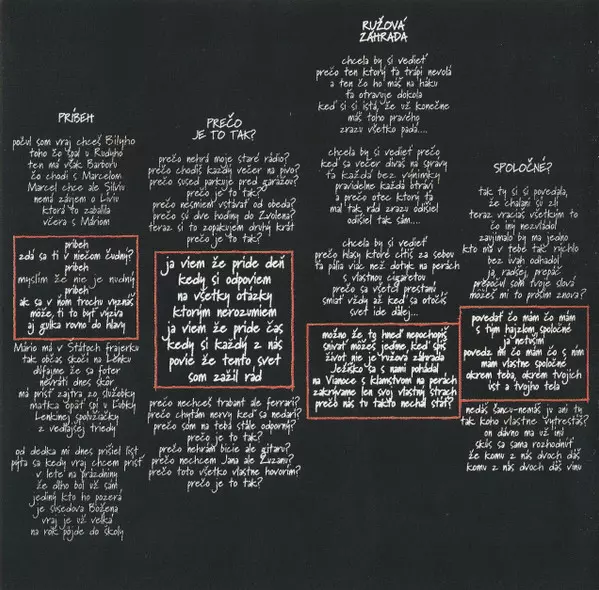 PRÍBEH
počul som vraj chceš Bilyho
toho čo spal u Rudyho
ten má však Barboru
čo chodí s Marcelom
Marcel chce ale Silviu
nemá záujem o Líviu
ktorá to zabalila
včera s Máriom
príbeh
zdá sa ti v niečom čudný?
príbeh
myslím že nie je nudný
príbeh
ak sa v ňom trochu vyznáš
môže, ti to byť výzva
aj guľka rovno do hlavy
Mário má v Štátoch frajerku
tak občas skočí na Lenku
dúfajme že sa foter
nevráti dnes skôr
má prísť zajtra zo služobky
matka opäť spí u Ľubky
Lenkinej spolužiačky
z vedľajšej triedy
od dedka mi dnes prišiel list
pýta sa kedy vraj chcem prísť
v lete na prázdniny
že dlho bol už sám
jediný kto ho pozerá
je susedova Božena
vraj je už veľká
na rok pôjde do školy
PREČO
JE TO TAK?
prečo nehrá moje staré rádio?
prečo chodíš každý večer na pivo?
prečo sused parkuje pred garážou?
prečo je to tak?
prečo nesmiem vstávať od obeda?
prečo sú dve hodiny do Zvolena?
teraz si to zopakujem druhý krát
prečo je to tak?
ja viem že príde deň
kedy si odpoviem
na všetky otázky
ktorým nerozumiem
ja viem že príde čas
kedy si každý z nás
povie že tento svet
som zažil rád
prečo nechceš trabant ale ferrari?
prečo chytám nervy keď sa nedarí?
prečo som na teba stále odporný?
prečo je to tak?
prečo nehrám bicie ale gitaru?
prečo nechcem Jana ale Zuzanu?
prečo toto všetko vlastne hovorím?
prečo je to tak?
RUŽOVÁ
ZÁHRADA
chcela by si vedieť
prečo ten ktorý ťa trápi nevolá
a ten čo ho máš na háku
ťa otravuje dokola
keď si si istá, že už konečne
máš toho pravého
zrazu všetko padá....
chcela by si vedieť prečo
keď sa večer dívaš na správy
ťa každá bez výnimky
pravidelne každá otrávi
a prečo otec ktorý ťa
mal tak rád zrazu odišiel
odišiel tak sám....
chcela by si vedieť
prečo hlasy ktoré cítiš za sebou
ťa pália viac než dotyk na perách
s vlastnou cigaretou
prečo sa všetci prestanú
smiať vždy až keď sa otočíš
svet ide ďalej...
možno že to hneď nepochopíš
snívať môžeš jedine keď spíš
život nie je ružová záhrada
Ježiško sa s nami pohádal
na Vianoce s klamstvom na perách
zakrývame len svoj vlastný strach
prečo nás tu takto nechal stáť?
SPOLOČNÉ?
tak ty si si povedala,
že chalani sú zlí
teraz vraciaš všetkým to
čo iný nezvládol
zaujímalo by ma jedno
kto má v tebe tak rýchlo
bez úvah odhadol
ja radšej, prepáč
prepočul som tvoje slová
môžeš mi to prosím znova?
povedať čo mám čo mám
s tým hajzlom spoločné
ja netuším
povedz mi čo mám čo s ním
mám vlastne spoločné
okrem teba, okrem tvojich
úst a tvojho tela
nedáš šancu-nemáš ju ani ty
tak koho vlastne vytrestáš?
on dávno má už inú
skús sa sama rozhodnúť
že komu z nás dvoch dáš
komu z nás dvoch dáš vinu